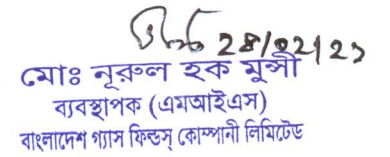 28/02/23
মোঃ নূরুল হক মুন্সী
ব্যবস্থাপক (এমআইএস)
বাংলাদেশ গ্যাস ফিল্ডস্ কোম্পানী লিমিটেড